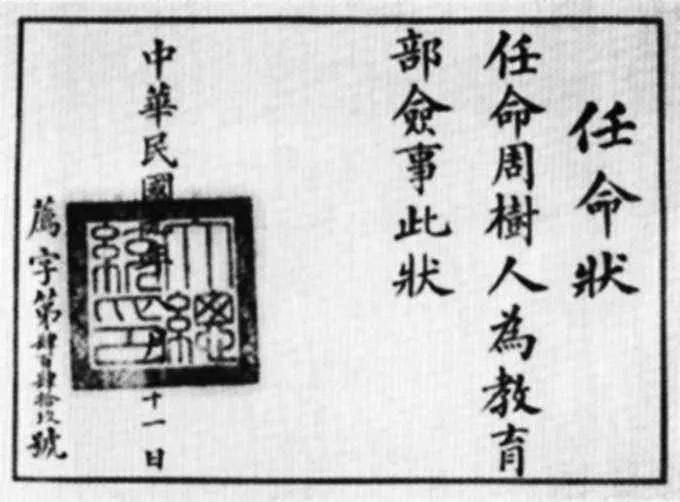 任命狀
任命周樹人為教育
部僉事此狀
中華民國 十一日
大總
統印
薦字第肆百肆拾玖號